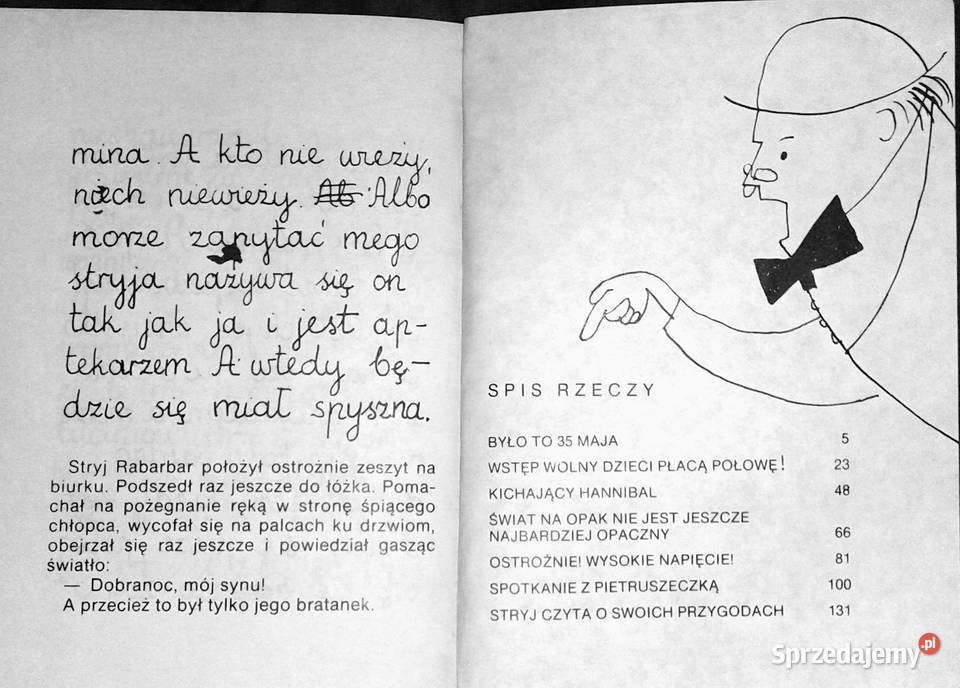 mina. A kto nie wreży,
niech niewieży. Ab Albo
morze zapytać mego
stryja nażywa się on
tak jak ja i jest ap-
tekarzem A wtedy bę-
dzie się miał spyszna.
Stryj Rabarbar położył ostrożnie zeszyt na
biurku. Podszedł raz jeszcze do łóżka. Poma-
chał na pożegnanie ręką w stronę śpiącego
chłopca, wycofał się na palcach ku drzwiom,
obejrzał się raz jeszcze i powiedział gasząc
światło:
— Dobranoc, mój synu!
A przecież to był tylko jego bratanek.
SPIS RZECZY
BYŁO TO 35 MAJA 5
WSTĘP WOLNY DZIECI PŁACĄ POŁOWĘ! 23
KICHAJĄCY HANNIBAL 48
ŚWIAT NA OPAK NIE JEST JESZCZE
NAJBARDZIEJ OPACZNY 66
OSTROŻNIE! WYSOKIE NAPIĘCIE! 81
SPOTKANIE Z PIETRUSZECZKĄ 100
STRYJ CZYTA O SWOICH PRZYGODACH 131
Sprzedajemy.pl